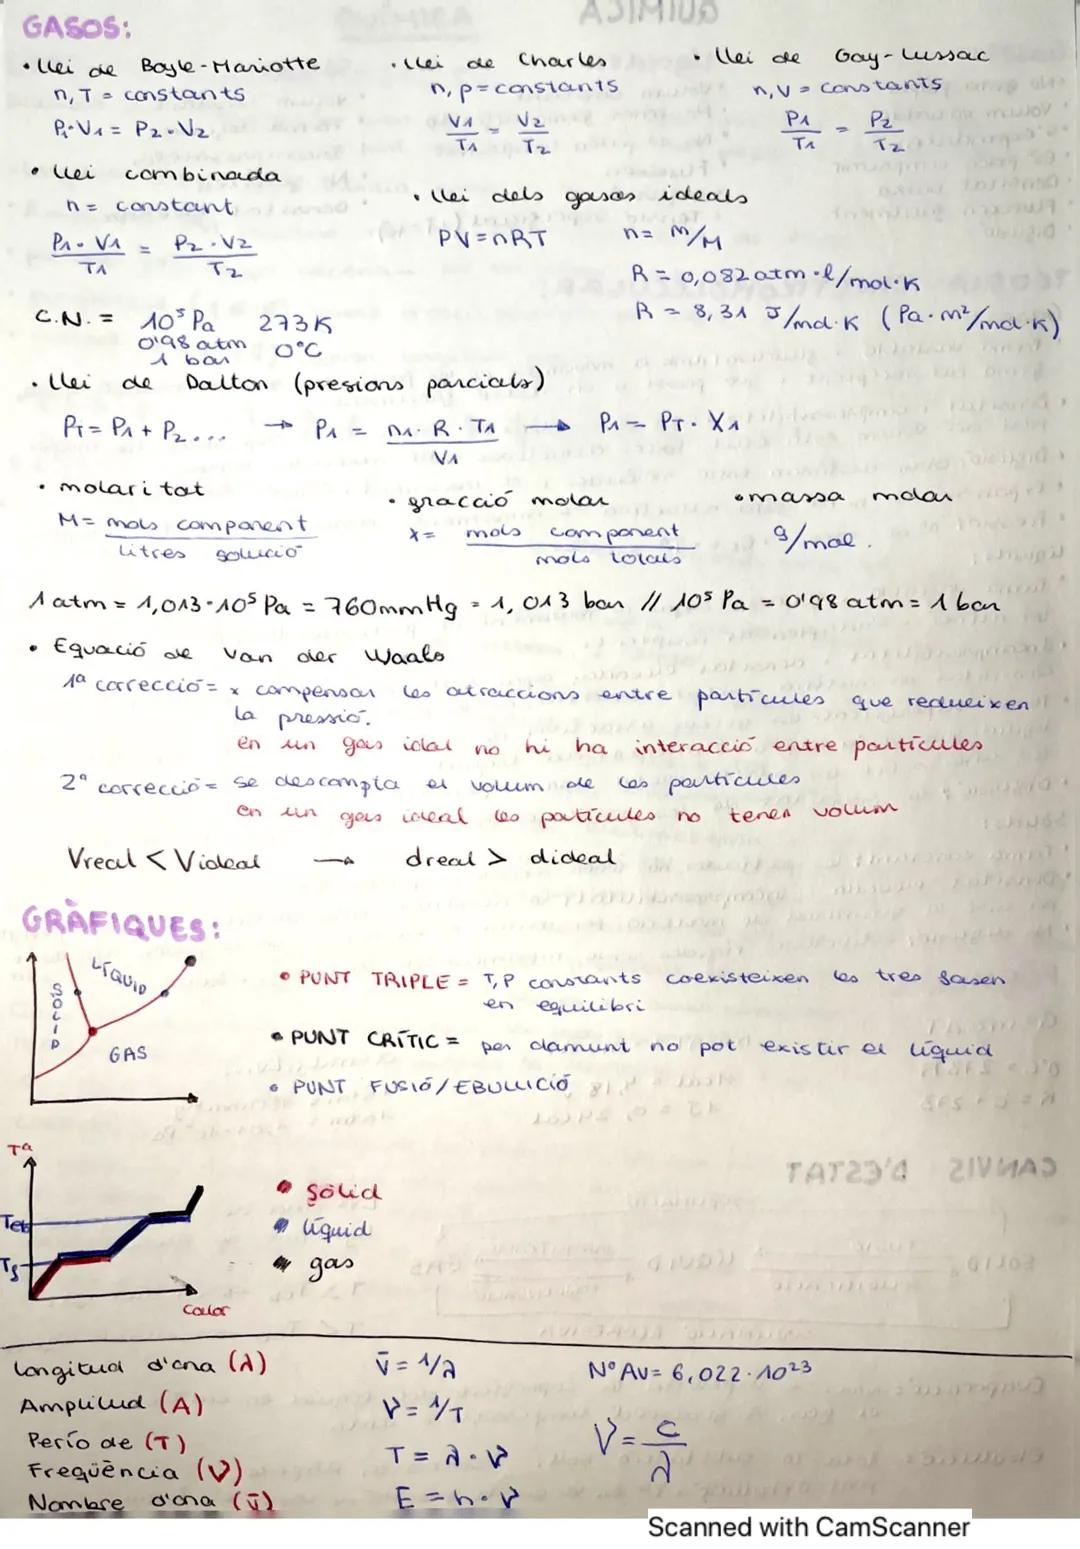 GASOS:
• llei de Boyle-Mariotte
n, T = constants
P₁·V₁ = P₂·V₂
• llei de Charles
n, p = constants
V₁/T₁ = V₂/T₂
• llei de Gay-Lussac
n, V = constants
P₁/T₁ = P₂/T₂
• llei combinada
n = constant
P₁·V₁/T₁ = P₂·V₂/T₂
• llei dels gasos ideals
PV = nRT n = m/M
R = 0,082 atm·l/mol·K
R = 8,31 J/mol·K (Pa·m²/mol·K)
C.N. = 10⁵ Pa 273K
0'98 atm 0°C
1 bar
• llei de Dalton (presions parcials)
PT = P₁ + P₂... → P₁ = n₁·R·T₁/V₁ → P₁ = PT·X₁
• molaritat
M = mols component/litres solució
• gracció molar
x = mols component/mols totals
• massa molar
g/mol.
1 atm = 1,013·10⁵ Pa = 760mmHg = 1,013 bar // 10⁵ Pa = 0'98 atm = 1 bar
• Equació de Van der Waals
1ª correcció = x compensar les atraccions entre partícules que redueixen
la pressió.
en un gas idal no hi ha interacció entre partícules
2ª correcció = se descompta el volum de les partícules
en un gas ideal les patícules no tenen volum
Vreal < Videal → dreal > dideal
GRÀFIQUES:
SÒLID
LÍQUID
GAS
• PUNT TRIPLE = T, P constants coexisteixen les tres fasen
en equilibri
• PUNT CRÍTIC = per damunt no pot existir el líquid
• PUNT FUSIÓ/EBULLICIÓ
Tª
Teb
Tf
Calor
• sòlid
• líquid
• gas
longitud d'ona (λ)
Amplitud (A)
Perío de (T)
Freqüència (ν)
Nombre d'ona (ν̄)
ν̄ = 1/λ
ν = 1/T
T = λ·ν
E = h·ν
Nº AV = 6,022·10²³
ν = c/λ
Scanned with CamScanner